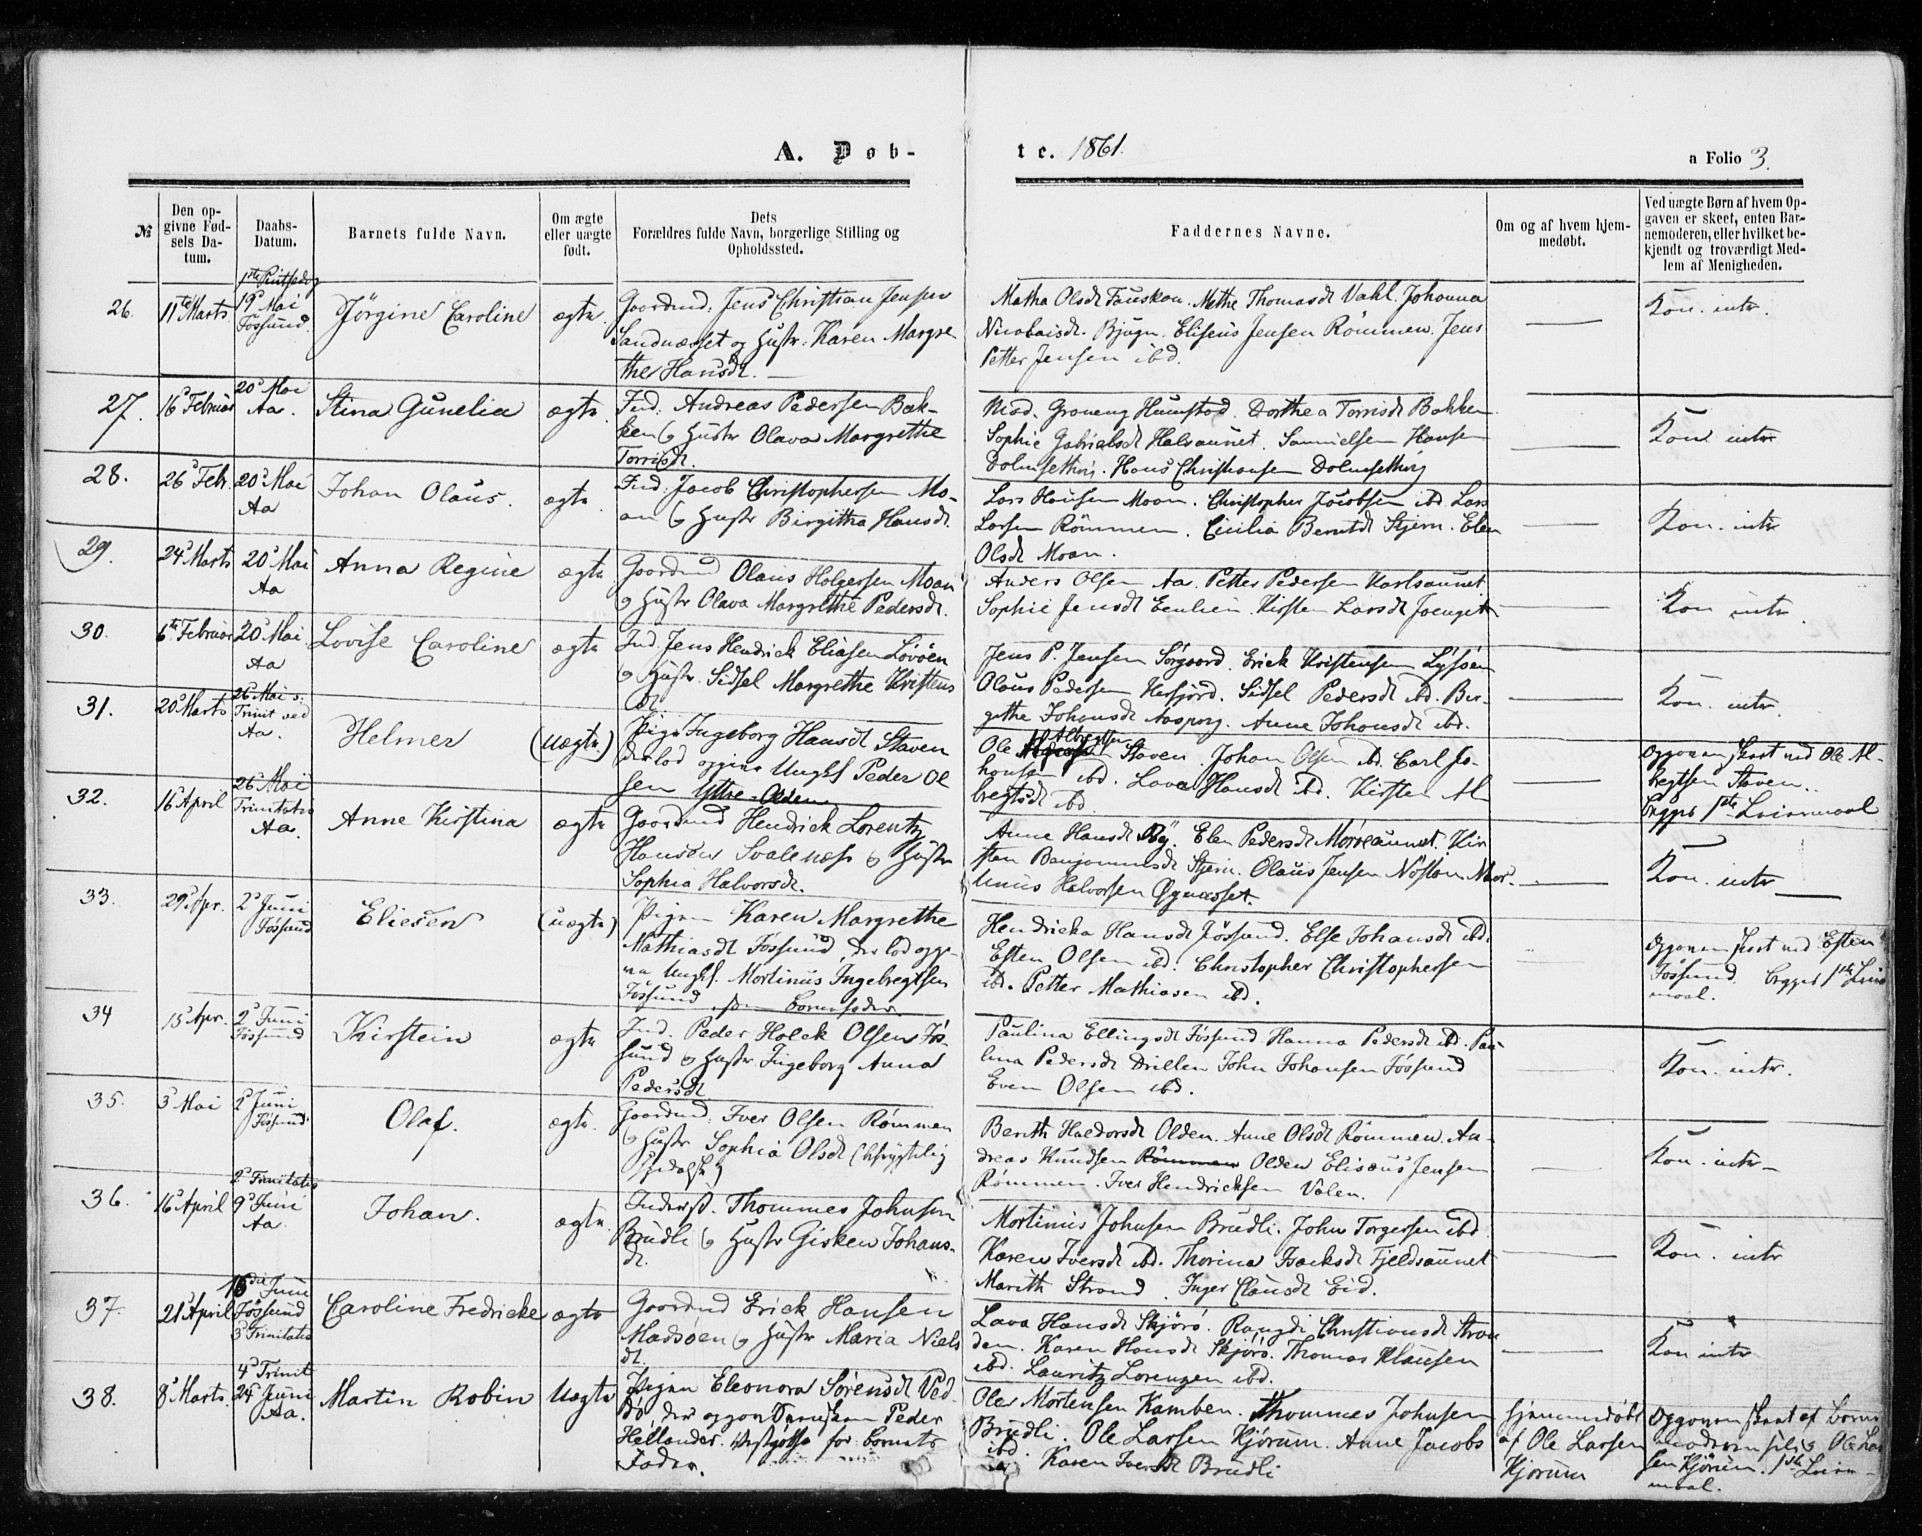 A. Døb-
te. 1861.
a Folio 3.
№
Den opgivne Fødsels Datum.
Daabs-Datum.
Barnets fulde Navn.
Om ægte eller uægte født.
Dets Forældres fulde Navn, borgerlige Stilling og Opholdssted.
Faddernes Navne.
Om og af hvem hjemmedøbt.
Ved uægte Børn af hvem Opgaven er skeet, enten Barnemoderen, eller hvilket bekjendt og troværdigt Medlem af Menigheden.
26. 11te Marts
1ste Pintsedag
19d Mai
Jössund.
Jörgine Caroline
ægte
Gaardmd. Jens Christian Jensen
Sandnæsset og Hustr. Karen Margre
the Hansdt.
Martha Olsdt Fauskan. Methe Thomasdt Vahl. Johanna
Nicolaisdt. Bjugn. Eliseus Jensen Römmen. Jens
Petter Jensen ibd.
Kon. intr.
27. 16d Februar
20d Mai
Aa.
Stina Gunelia
ægte
Ind. Andreas Pedersen Bak-
ken og Hustr Olava Margrethe
Torrisdt.
Mad. Groneng Humstad. Dorthea Torrisdt Bakken
Sophie Gabrielsdt Halsaunet. Samuelsen Hansen
Hans Christiansen
Kon intr
28. 26d Febr.
20d Mai
Aa
Johan Olaus.
ægte
Ind. Jacob Christophersen Mo-
an og Hustr Birgitha Hansdt.
Lars Hansen Moan. Christopher Jacobsen ibd Lars
Larsen Römmen. Cecilia Berntdt Stjern. Elen
Olsdt Moan.
Kon. intr
29. 24d Marts
20d Mai
Aa
Anna Regine
ægte
Gaardmd Olaus Holgersen Moan
og Hustr Olava Margrethe Pedersdt.
Anders Olsen Aa. Petter Pedersen Karlsaunet.
Sophie Jensdt Kirsten Larsdt
Kon intr.
30. 6te Februar
20d Mai
Aa
Lovise Caroline
ægte
Ind. Jens Hendrick Eliasen Lövöen
og Hustr. Sidsel Margrethe Kristens
dt.
Jens P. Jensen Sörgaard. Erick Kristensen Lysöen
Olaus Pedersen Herfjord. Sidsel Pedersdt ibd. Bir-
githe Johansdt Aspervg. Anne Johansdt ibd.
Kon. intr.
31. 20d Marts
26 Mai s.
Trinit ved
Aa.
Helmer
(uægte)
Pige Ingeborg Hansdt Staven
der lod opgive Ungkl Peder Ol
sen Yttre-Olden
Ole Albregtsen Staven. Johan Olsen ibd. Carl Jo-
hansen ibd. Lava Hansdt ibd. Kirsten Al
bregtsdt ibd.
Opgaven skeet ved Ole Al-
bregtsen Staven.
Begges 1ste Leiermaal
32. 16d April
26d Mai
Trinitatis
Aa.
Anne Kirstina
ægte
Gaardmd Hendrick Lorentz
Hansen Svalenæss og Hustr
Sophia Halvorsdt.
Anne Hansdt By. Elen Pedersdt Mörreaunet. Kir
sten Benjaminsdt Stjern. Olaus Jensen Nöstan. Mar-
tinus Halvorsen Öynæsset.
Kon. intr
33. 29d Apr.
2d Juni
Jössund
Eliesen
(uægte)
Pigen Karen Margrethe
Mathiasdt Jössund, der lod opgi-
ve Ungkl. Mortinus Ingebregtsen
Jössund som Barnefader.
Hendricka Hansdt Jössund. Else Johansdt ibd.
Esten Olsen ibd. Christopher Christophersen
ibd. Petter Mathiasen ibd.
Opgaven skeet ved Esten
Jössund. Begges 1ste Leier
maal.
34 15d Apr.
2d Juni
Jössund
Kirstein
ægte
Ind. Peder Holck Olsen Jös-
sund og Hustr Ingeborg Anna
Pedersdt
Paulina Ellingsdt Jössund Hanna Pedersdt ibd. Pau
lina Pedersdt Drillen John Johansen Jössund
Even Olsen ibd.
Kon. intr.
35. 3d Mai
2d Juni
Jössund
Olaf.
ægte.
Gaardmd. Iver Olsen Römmen
og Hustr Sophia Olsdt
Berith Haldorsdt Olden. Anne Olsdt Römmen. An-
dreas Knudsen Römmen Olden Eliseus Jensen
Römmen. Iver Hendricksen Valen.
Kon. intr-
36. 16d April
2d Trinitatis
9d Juni
Aa.
Johan.
ægte.
Inderst. Thommes Johnsen
Brudli og Hustr Gisken Johans-
dt.
Mortinus Johnsen Brudli. John Torgersen ibd
Karen Iversdt ibd. Thorina Isacksdt Fjeldsaunet
Marith Strand. Inger Clausdt Eid.
Kon. intr
37. 21d April
16de Juni
Jössund
3 Trinitatis
Caroline Fredricke
ægte
Gaardmd Erick Hansen
Madsöen og Hustr Maria Niels
dt.
Lava Hansdt Skjörö. Rangdi Christiansdt Stran
den. Karen Hansdt Skjörö. Thomas Klausen
ibd. Lauritz Lorenzen ibd.
Kon intr
38. 8d Marts.
4d Trinit
24d Juni
Aa.
Martin Robin
Uægte
Pigen Eleonora Sörensdt Ved
bö, der opgav Svensken Peder
Hellander. for Barnets
Fader.
Oles Mortensen Kamben. Thommes Johnsen
Brudli. Ole Larsen Hjörum. Anne Jacobs
ibd. Karen Iversdt Brudli
hjemmedöbt
af Ole Larsen
Hjorum
Opgaven skeet af Barne
moderen selv og Ole Lar
sen Hjörum. 1ste Leier-
maal.